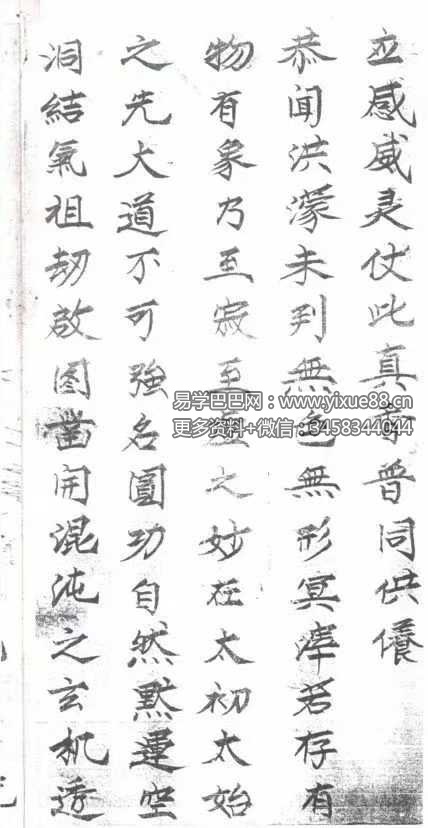 立感威灵仗此真香普同供養
恭闻洪濛未判無色無形冥滓若存有
物有象乃至寂至虛之妙在太初太始
之先大道不可強名圓功自然默運空
洞結氣祖劫啟图凿開混沌之玄机透
易学巴巴网：www.yixue88.cn
更多资料+微信：3458344044